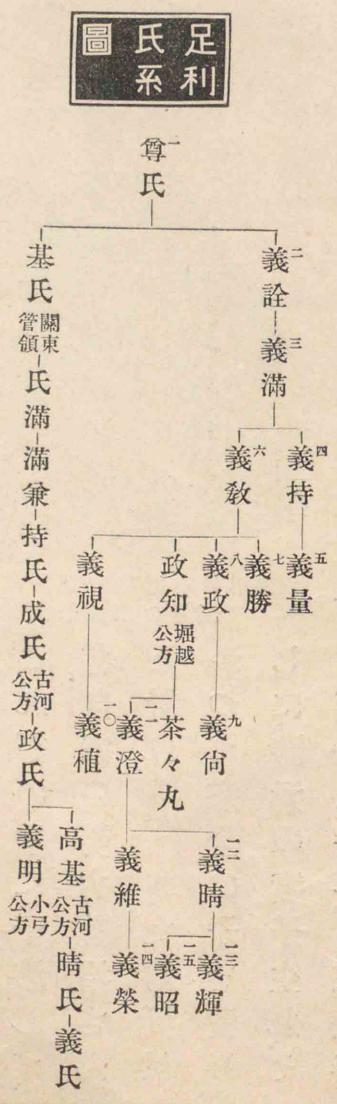 足利
氏系
圖
一尊氏
二義詮
三義滿
四義持
五義量
六義敎
七義勝
八義政
九義尙
政知
堀越
公方
茶々丸
一一義澄
義視
一〇義稙
一二義晴
一三義輝
一五義昭
義維
一四義榮
基氏
關東
管領
氏滿
滿兼
持氏
成氏
古河
公方
政氏
高基
古河
公方
晴氏
義氏
義明
小弓
公方